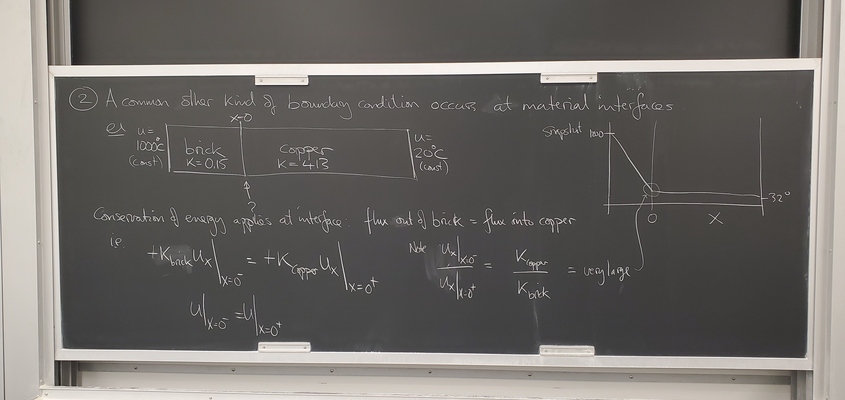 ② A common other kind of boundary condition occurs at material interfaces
x=0
es
u=
1000°C
(const)
brick
K=0.15
copper
K=413
u=
20°C
(const)
?
snapshot 1000
32°
0
X
Conservation of energy applies at interface: flux out of brick = flux into copper
i.e. +K_brick u_x|_{x=0⁻} = +K_copper u_x|_{x=0⁺}
Note u_x|_{x=0⁻} / u_x|_{x=0⁺} = K_copper / K_brick = very large
u|_{x=0⁻} = u|_{x=0⁺}